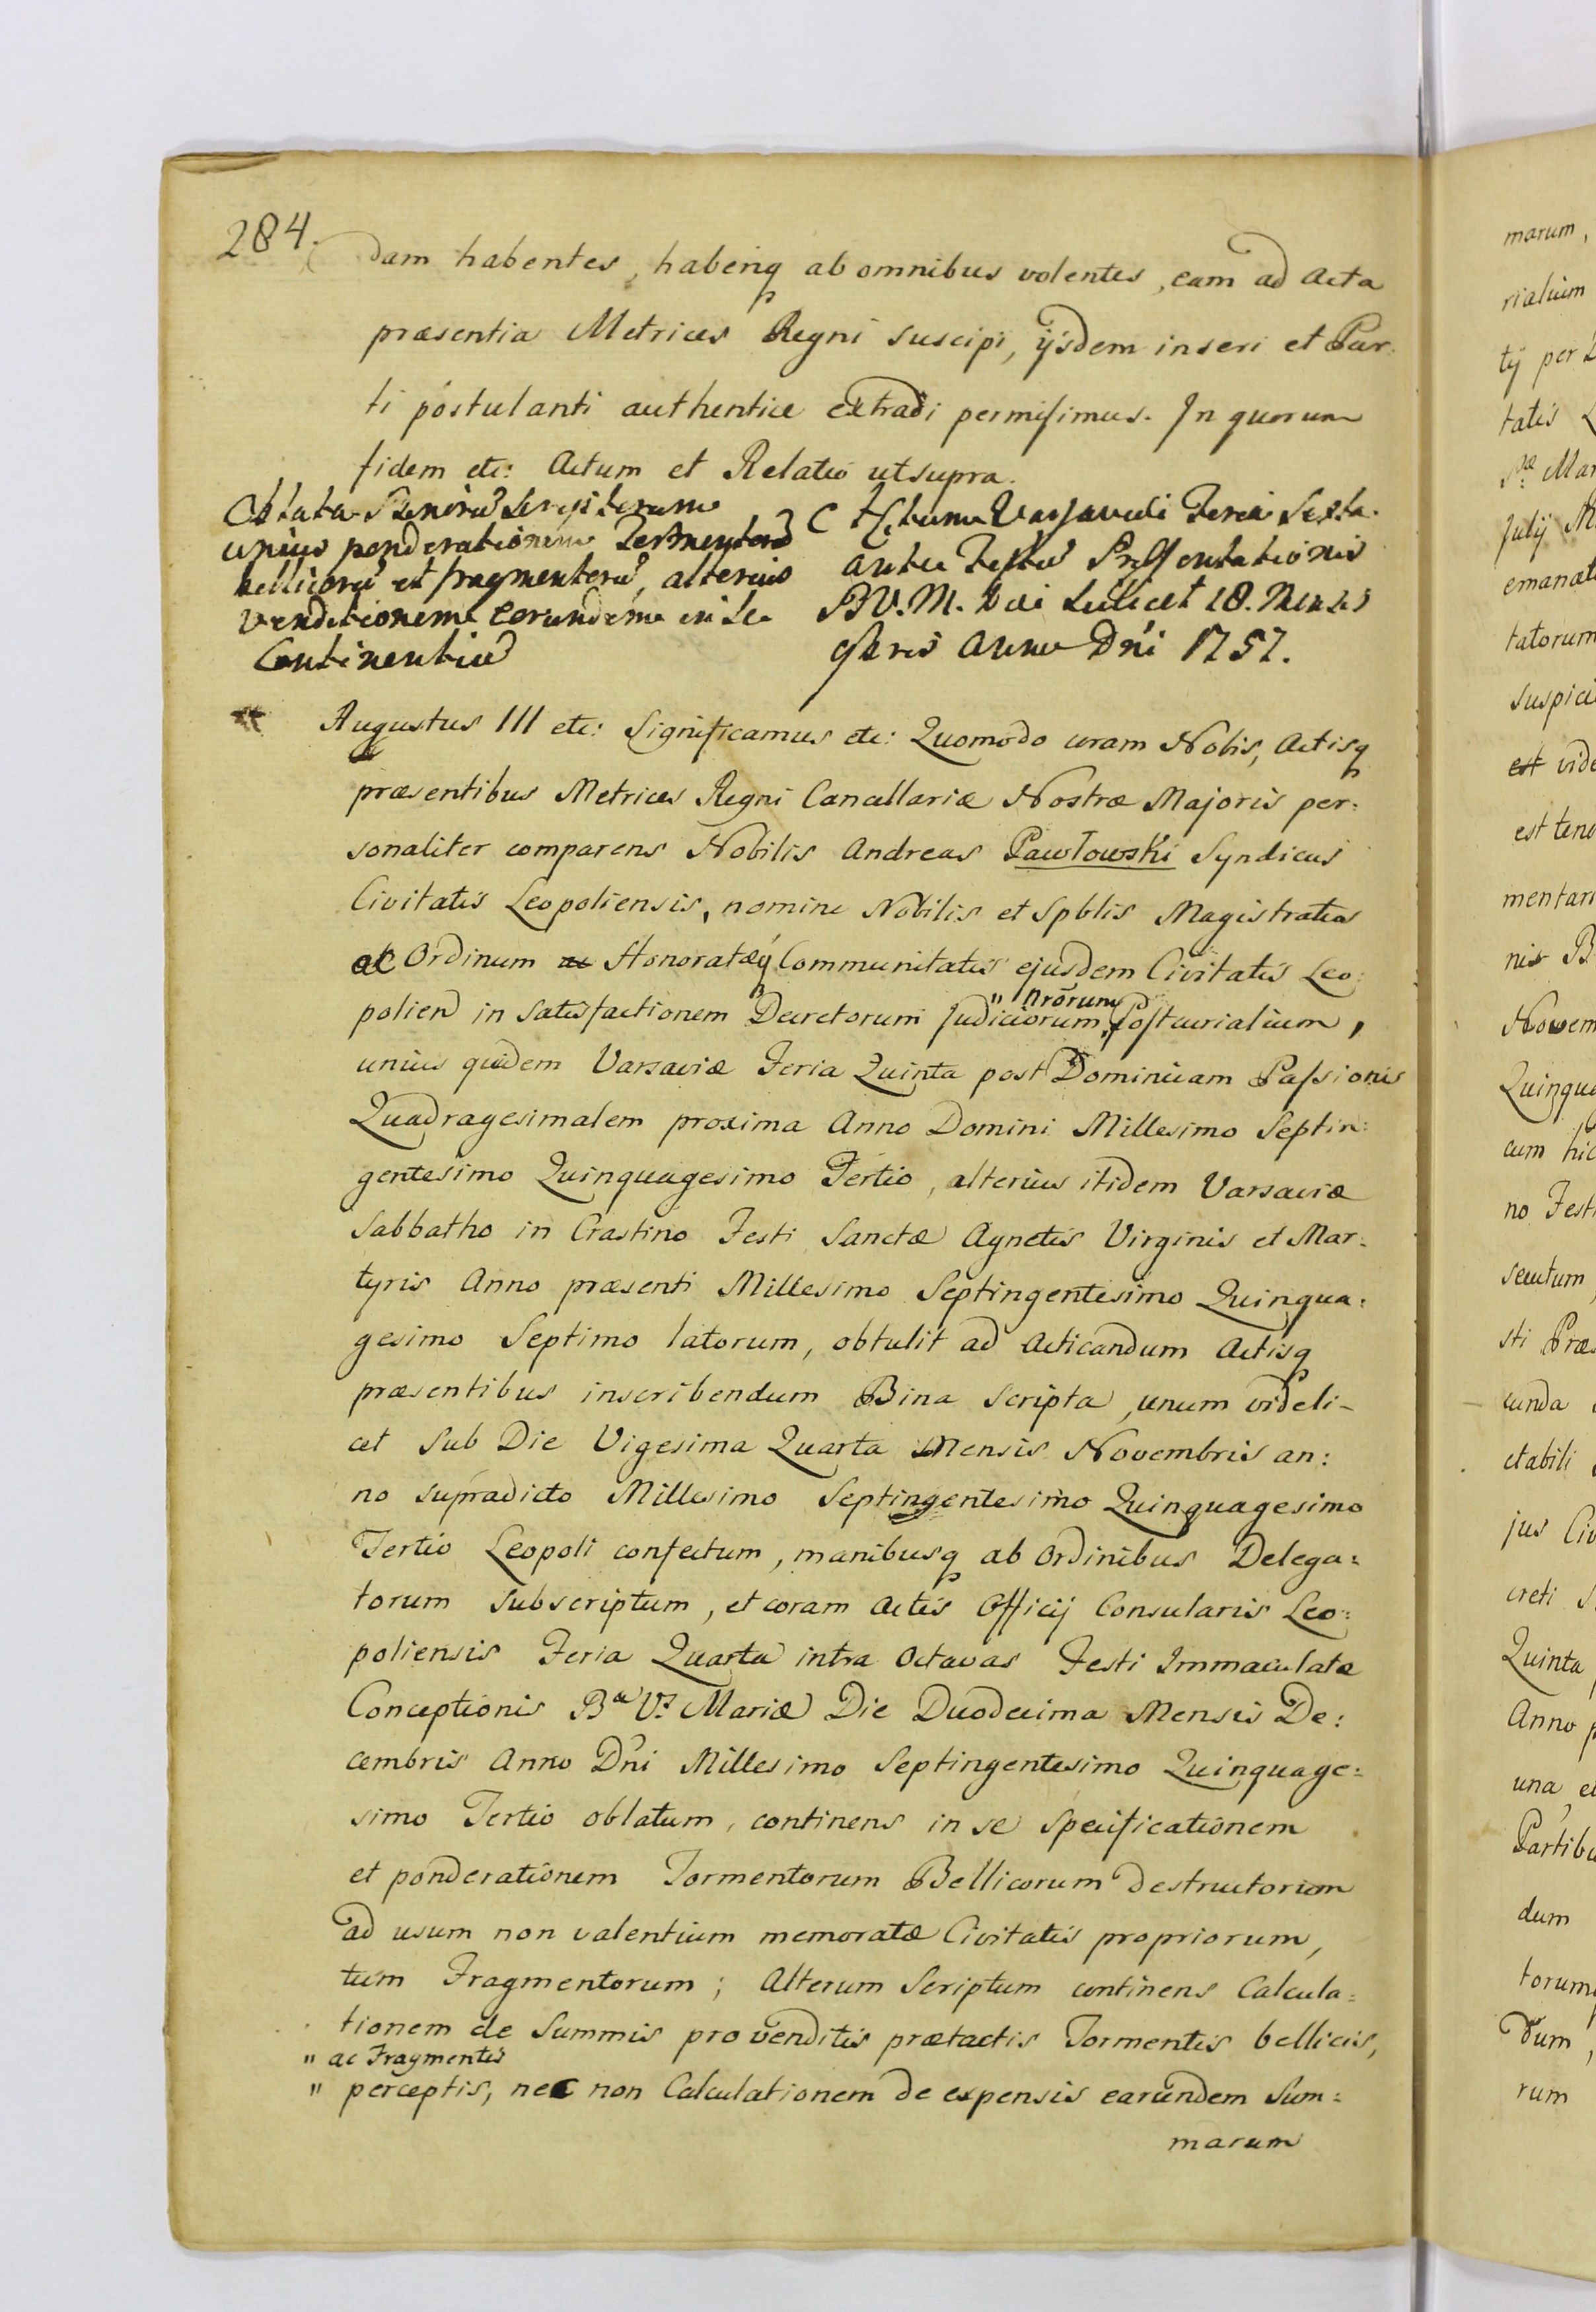 284.
dam habentes, haberiq ab omnibus volentes, eam ad Acta
præsentia Metrices Regni suscipi, ijsdem inseri et Par:
ti postulanti authentice extradi permisimus. In quorum
fidem etc: Actum et Relatio ut supra.
Oblata Scriptorum
unius ponderationem Tormentorũ
bellicorũ et fragmentorũ, alterius
venditionem eorundem in se
Continentiũ
Actum Varsaviæ Feria Sexta
ante Festũ Præsentationis
B.V.M. Die scilicet 18. Mensis
9bris Anno Dni 1757.
Augustus III etc: Significamus etc: Quomodo coram Nobis, Actisq
præsentibus Metrices Regni Cancellariæ Nostræ Majoris per:
sonaliter comparens Nobilis Andreas Pawłowski Syndicus
Civitatis Leopoliensis, nomine Nobilis et Spblis Magistratus
ac Ordinum Honoratæq Communitatis ejusdem Civitatis Leo:
" nrorum
polien in satisfactionem Decretorum Judiciorum Postcurialium,
unius quidem Varsaviæ Feria Quinta post Dominicam Passionis
Quadragesimalem proxima Anno Domini Millesimo Septin:
gentesimo Quinquagesimo Tertio, alterius itidem Varsaviæ
Sabbatho in Crastino Festi Sanctæ Agnetis Virginis et Mar:
tyris Anno præsenti Millesimo Septingentesimo Quinqua:
gesimo Septimo latorum, obtulit ad Acticandum Actisq
præsentibus inscribendum Bina Scripta, unum videli-
cet sub Die Vigesima Quarta Mensis Novembris an:
no supradicto Millesimo Septingentesimo Quinquagesimo
Tertio Leopoli confectum, manibusq ab Ordinibus Delega:
torum subscriptum, et coram Actis Officij Consularis Leo:
poliensis Feria Quarta intra Octavas Festi Immaculatæ
Conceptionis Bæ Vs Mariæ Die Duodecima Mensis De:
cembris Anno Dni Millesimo Septingentesimo Quinquage:
simo Tertio oblatum, continens in se Specificationem
et ponderationem Tormentorum Bellicorum destructorum
ad usum non valentium memoratæ Civitatis propriorum,
tum Fragmentorum; Alterum Scriptum continens Calcula:
tionem de Summis pro venditis prætactis Tormentis bellicis,
" ac Fragmentis
" perceptis, nec non Calculationem de expensis earundem Sum:
marum
marum,
rialium
tij per
tatis
Mar
Julij
emanat
tatorum
suspici
est vide
est teno
mentari
nis B
Novem
Quinqua
cum hic
no Festi
secutum
sti Præs
cunda
ctabili
jus Civ
creti
Quinta
Anno p
una, et
Partibu
dum
torum
dum,
rum